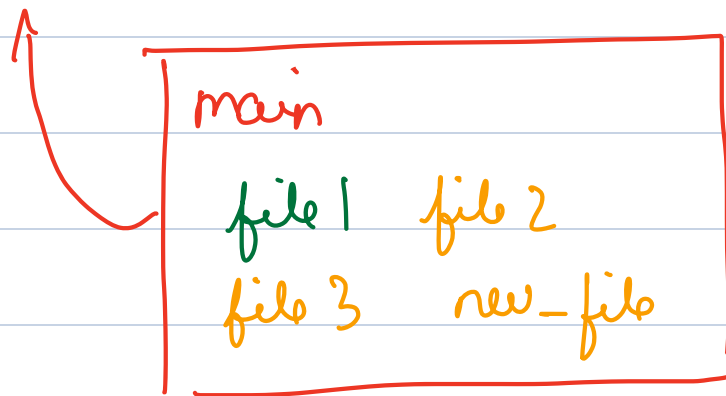 main
file 1 file 2
file 3 new_file